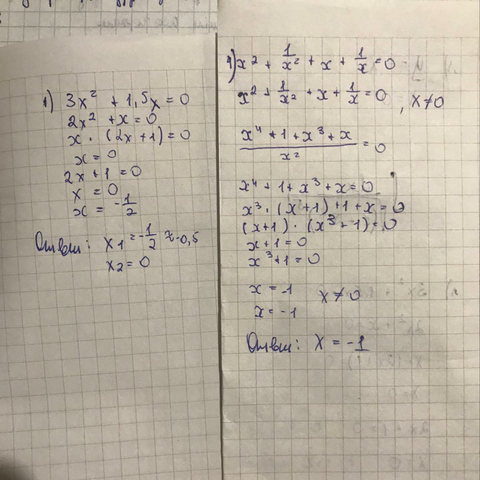 1) 3x² + 1,5x = 0
2x² + x = 0
x · (2x+1) = 0
x = 0
2x + 1 = 0
x = 0
x = -1/2
Ответ: x₁ = -1/2 ≈ -0,5
x₂ = 0
4) x² + 1/x² + x + 1/x = 0
x² + 1/x² + x + 1/x = 0 , x ≠ 0
(x⁴ + 1 + x³ + x)/x² = 0
x⁴ + 1 + x³ + x = 0
x³ · (x + 1) + 1 + x = 0
(x+1) · (x³ + 1) = 0
x + 1 = 0
x³ + 1 = 0
x = -1 x ≠ 0
x = -1
Ответ: x = -1